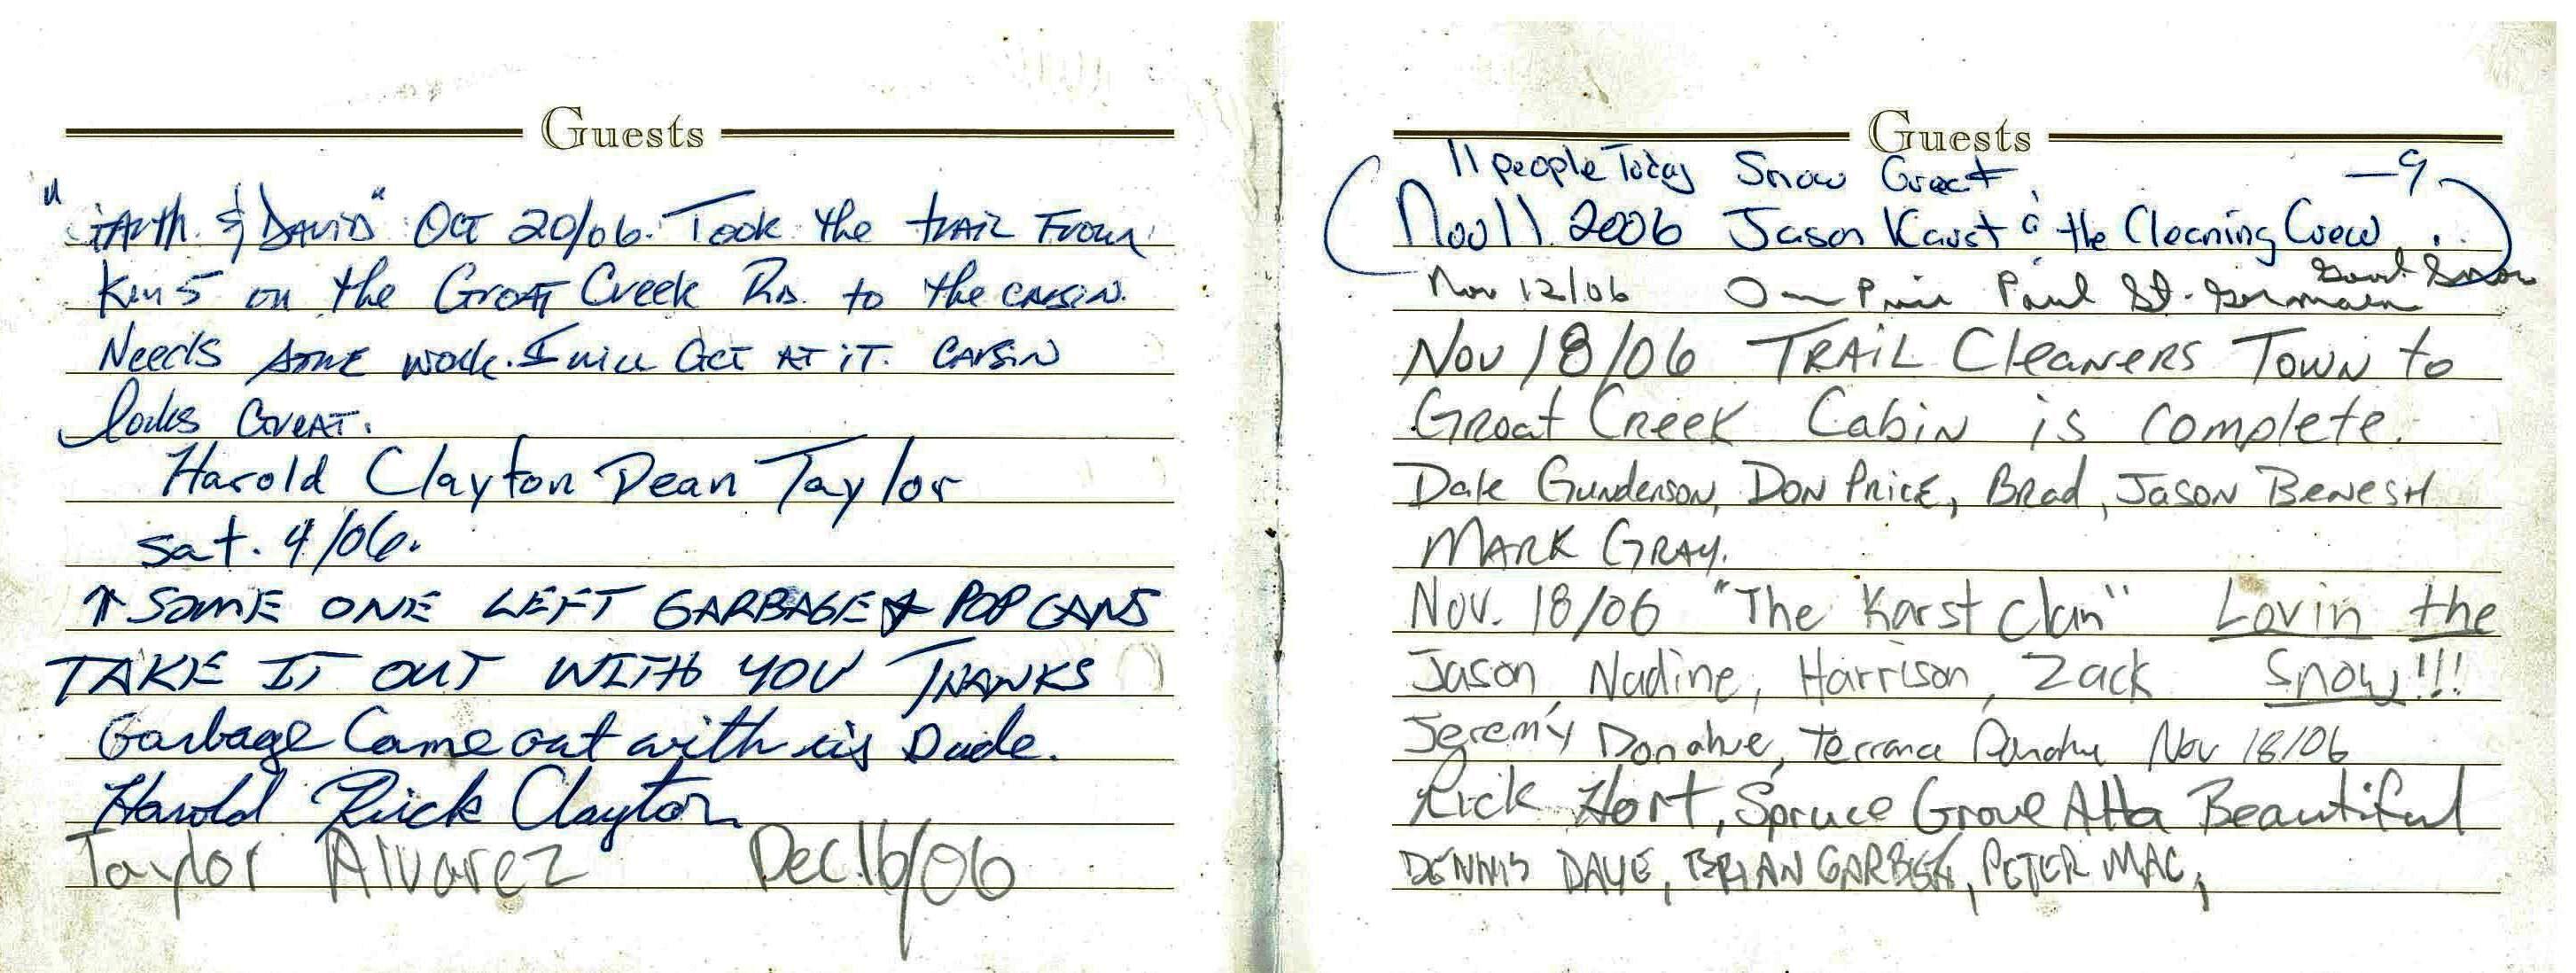 Guests
"Garth & David" Oct 20/06. Took the trail From
Km 5 on the Groat Creek Rd. to the cabin.
Needs some work. I will Get AT iT. CABIN
looks Great.
Harold Clayton Dean Taylor
sat. 4/06.
↑ SOME ONE LEFT GARBAGE & POP CANS
TAKE IT OUT WITH YOU THANKS
Garbage Came out with us Dude.
Harold Rick Clayton
Taylor Alvarez Dec.16/06
Guests
11 people Today Snow Great. -9
(Nov 11 2006 Jason Karst & the Cleaning Crew..)
Nov 12/06 Paul St. Germain
Nov 18/06 TRAIL CleaNeRS TOWN to
GRoat CReeK CabiN is complete.
Dale Gunderson, DON PRicE, BRad, JASON BeNesH
MARK GRAY.
Nov. 18/06 "The Karst Clan" Lovin the
Jason, Nadine, Harrison, Zack Snow!!!
Jeremy Donahue, Terrance Donahue Nov 18/06
Rick Hort, Spruce Grove Alta Beautiful
DENNIS DAVE, BRIAN, PETER MAC,